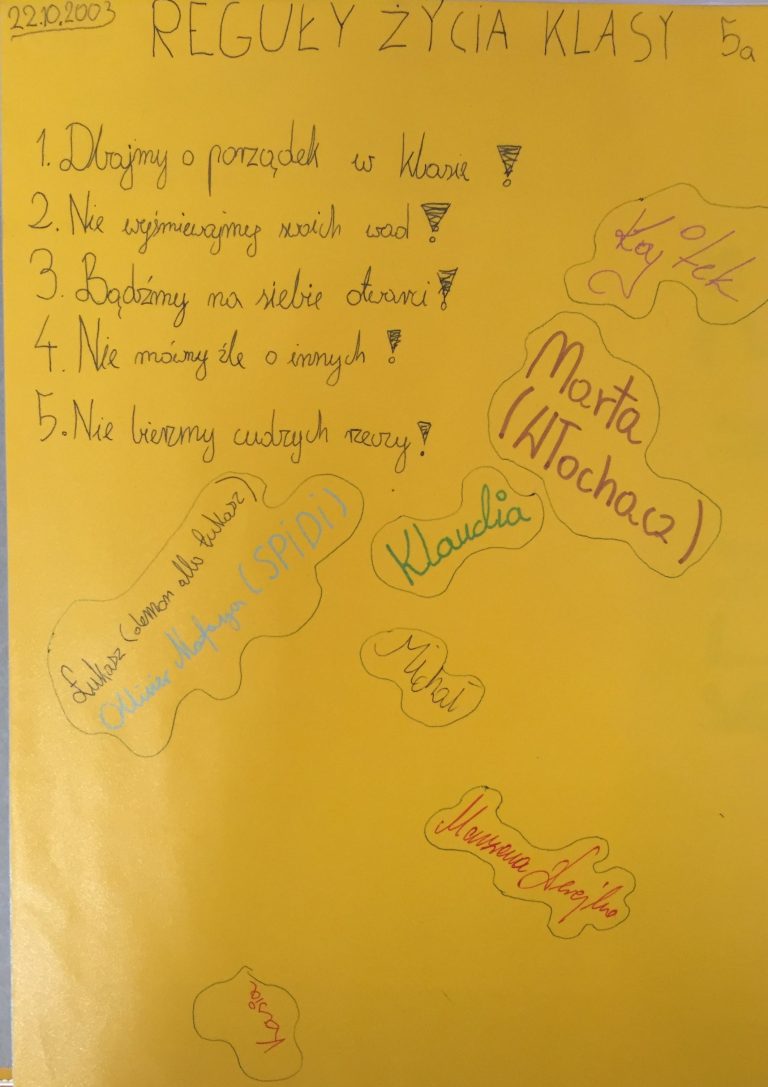 22.10.2003
REGUŁY ŻYCIA KLASY 5a
1. Dbajmy o porządek w klasie !
2. Nie wyśmiewajmy swoich wad !
3. Bądźmy na siebie otwarci !
4. Nie mówmy źle o innych !
5. Nie bierzmy cudzych rzeczy !
Kojtek
Marta
(Włochacz)
Klaudia
Łukasz (demon albo Łukasz)
(SPiDi)
Michał
Marzena
Kasia